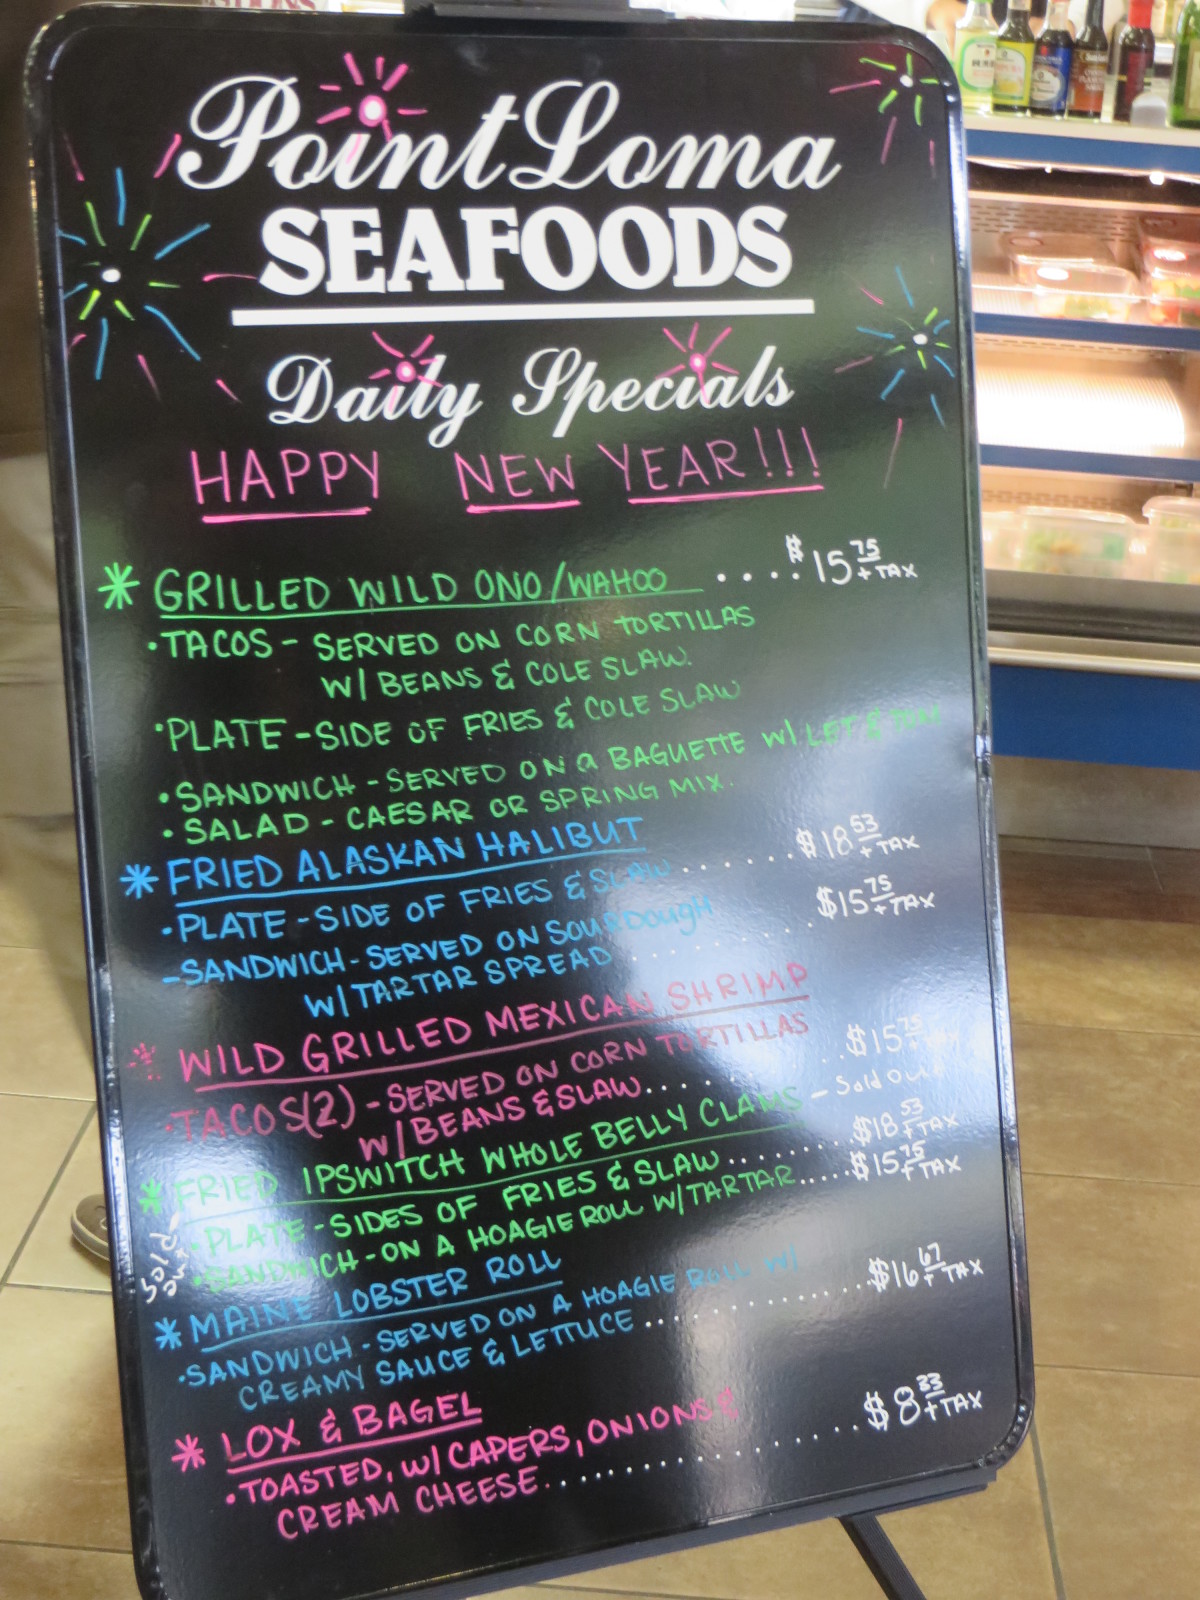 Point Loma
SEAFOODS
Daily Specials
HAPPY NEW YEAR!!!
* GRILLED WILD ONO/WAHOO ....$15 75 + TAX
• TACOS - SERVED ON CORN TORTILLAS
W/ BEANS & COLE SLAW.
• PLATE - SIDE OF FRIES & COLE SLAW
• SANDWICH - SERVED ON a BAGUETTE W/ LET & TOM
• SALAD - CAESAR OR SPRING MIX.
* FRIED ALASKAN HALIBUT
• PLATE - SIDE OF FRIES & SLAW.......$18 53 + TAX
- SANDWICH - SERVED ON SOURDOUGH
W/ TARTAR SPREAD ....... $15 75 + TAX
* WILD GRILLED MEXICAN SHRIMP
• TACOS(2) - SERVED ON CORN TORTILLAS
W/ BEANS & SLAW....... $15 75 + TAX
* FRIED IPSWITCH WHOLE BELLY CLAMS - Sold Out
• PLATE - SIDES OF FRIES & SLAW.......$18 53 + TAX
• SANDWICH - ON A HOAGIE ROLL W/ TARTAR.....$15 75 + TAX
Sold
out
* MAINE LOBSTER ROLL
• SANDWICH - SERVED ON A HOAGIE ROLL W/
CREAMY SAUCE & LETTUCE ..............$16 67 + TAX
* LOX & BAGEL
• TOASTED, W/ CAPERS, ONIONS &
CREAM CHEESE..................$8 33 + TAX